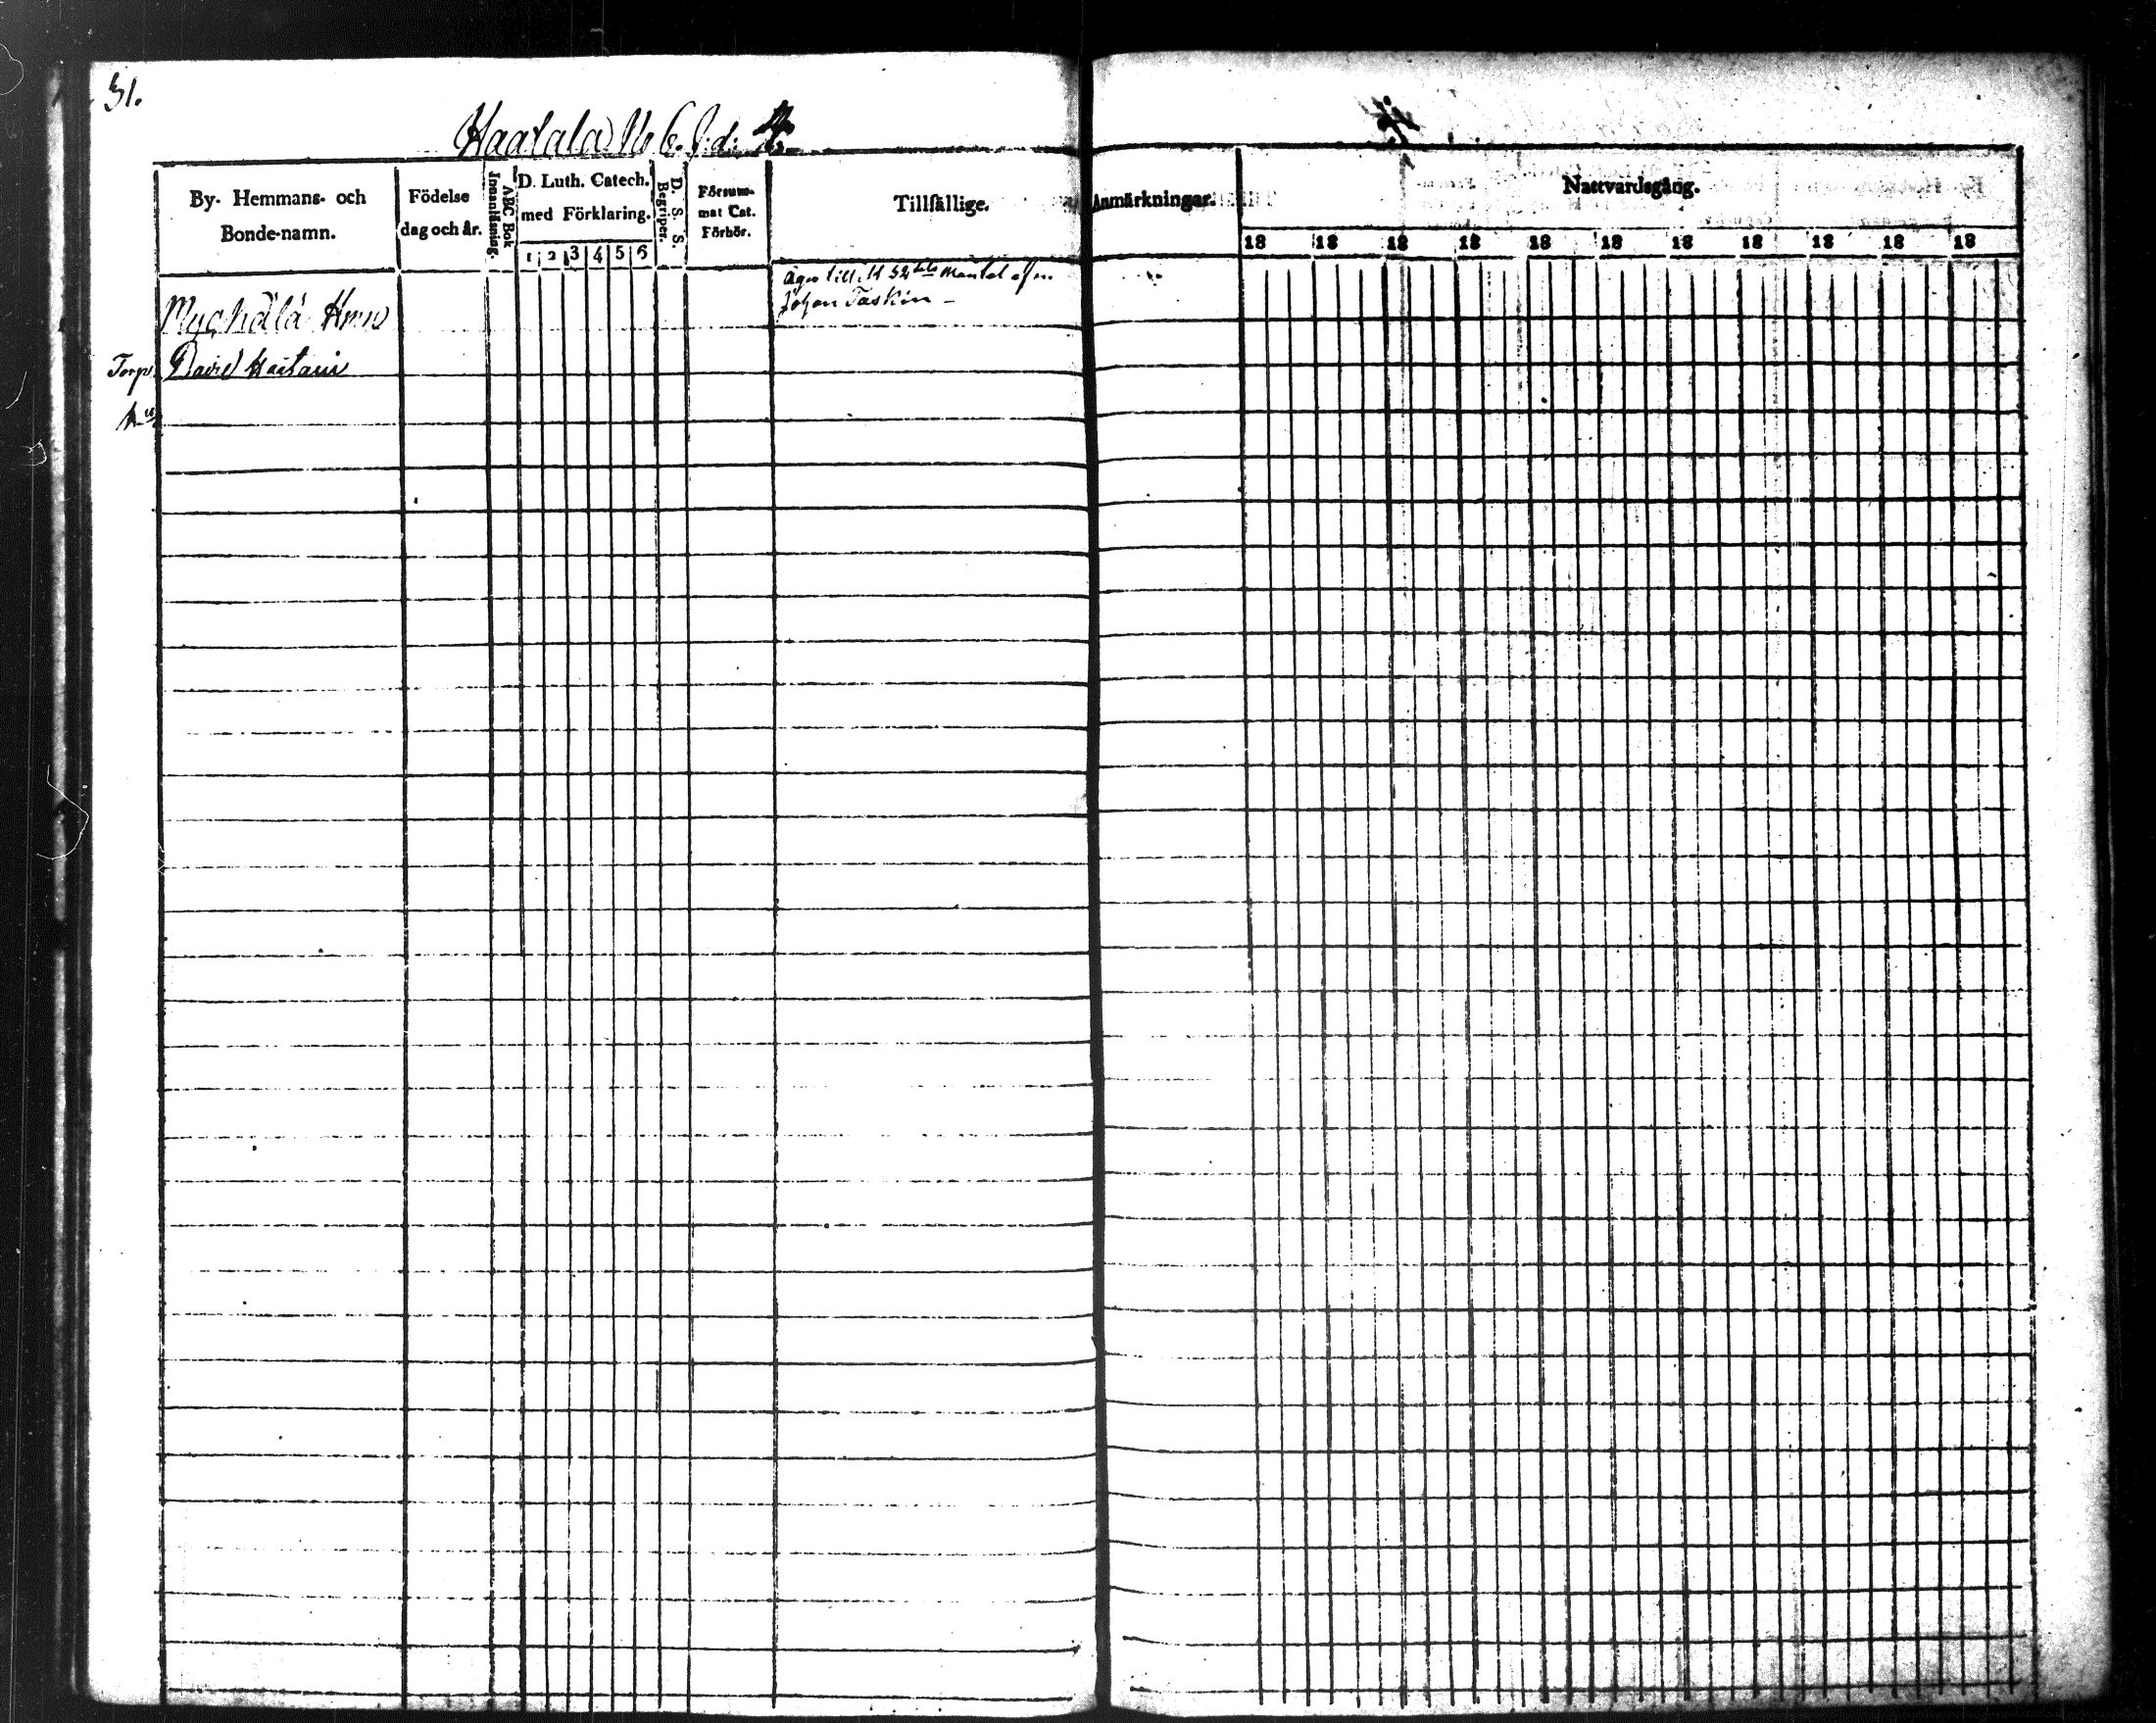 31.
Haatala No 6. J. d.
By- Hemmans- och
Bonde-namn.
Födelse
dag och år.
ABC Bok
Innanläsning.
D. Luth. Catech.
med Förklaring.
1 2 3 4 5 6
D. S. S.
Begriper.
Försum-
mat Cat.
Förhör.
Tillfällige.
Anmärkningar.
Nattvardsgång.
18 18 18 18 18 18 18 18 18 18 18
Mantal af
Johan Taskin
Torp. David